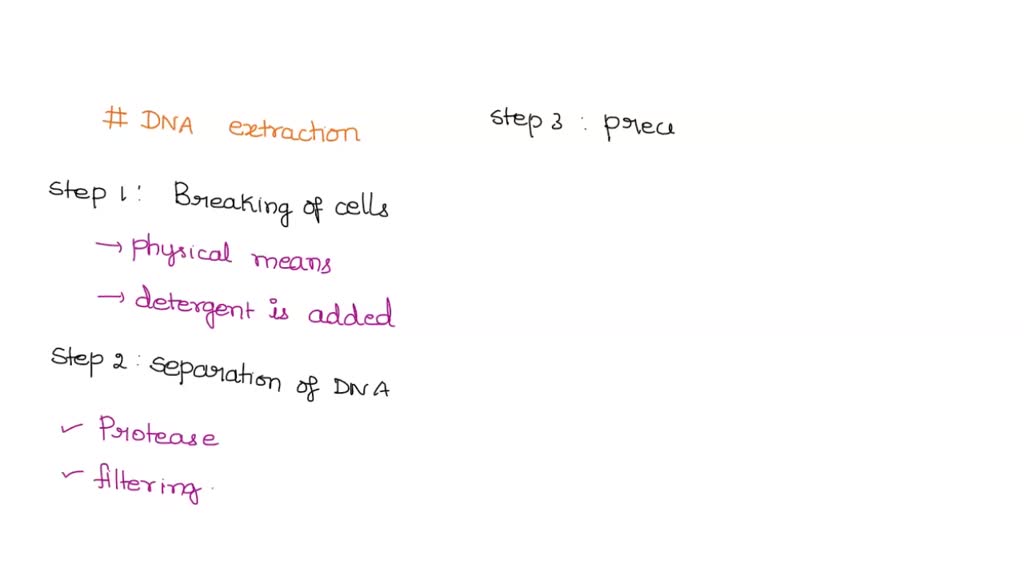 # DNA extraction
step 1: Breaking of cells
→ physical means
→ detergent is added
step 2: separation of DNA
✓ Protease
✓ filtering
step 3: prece